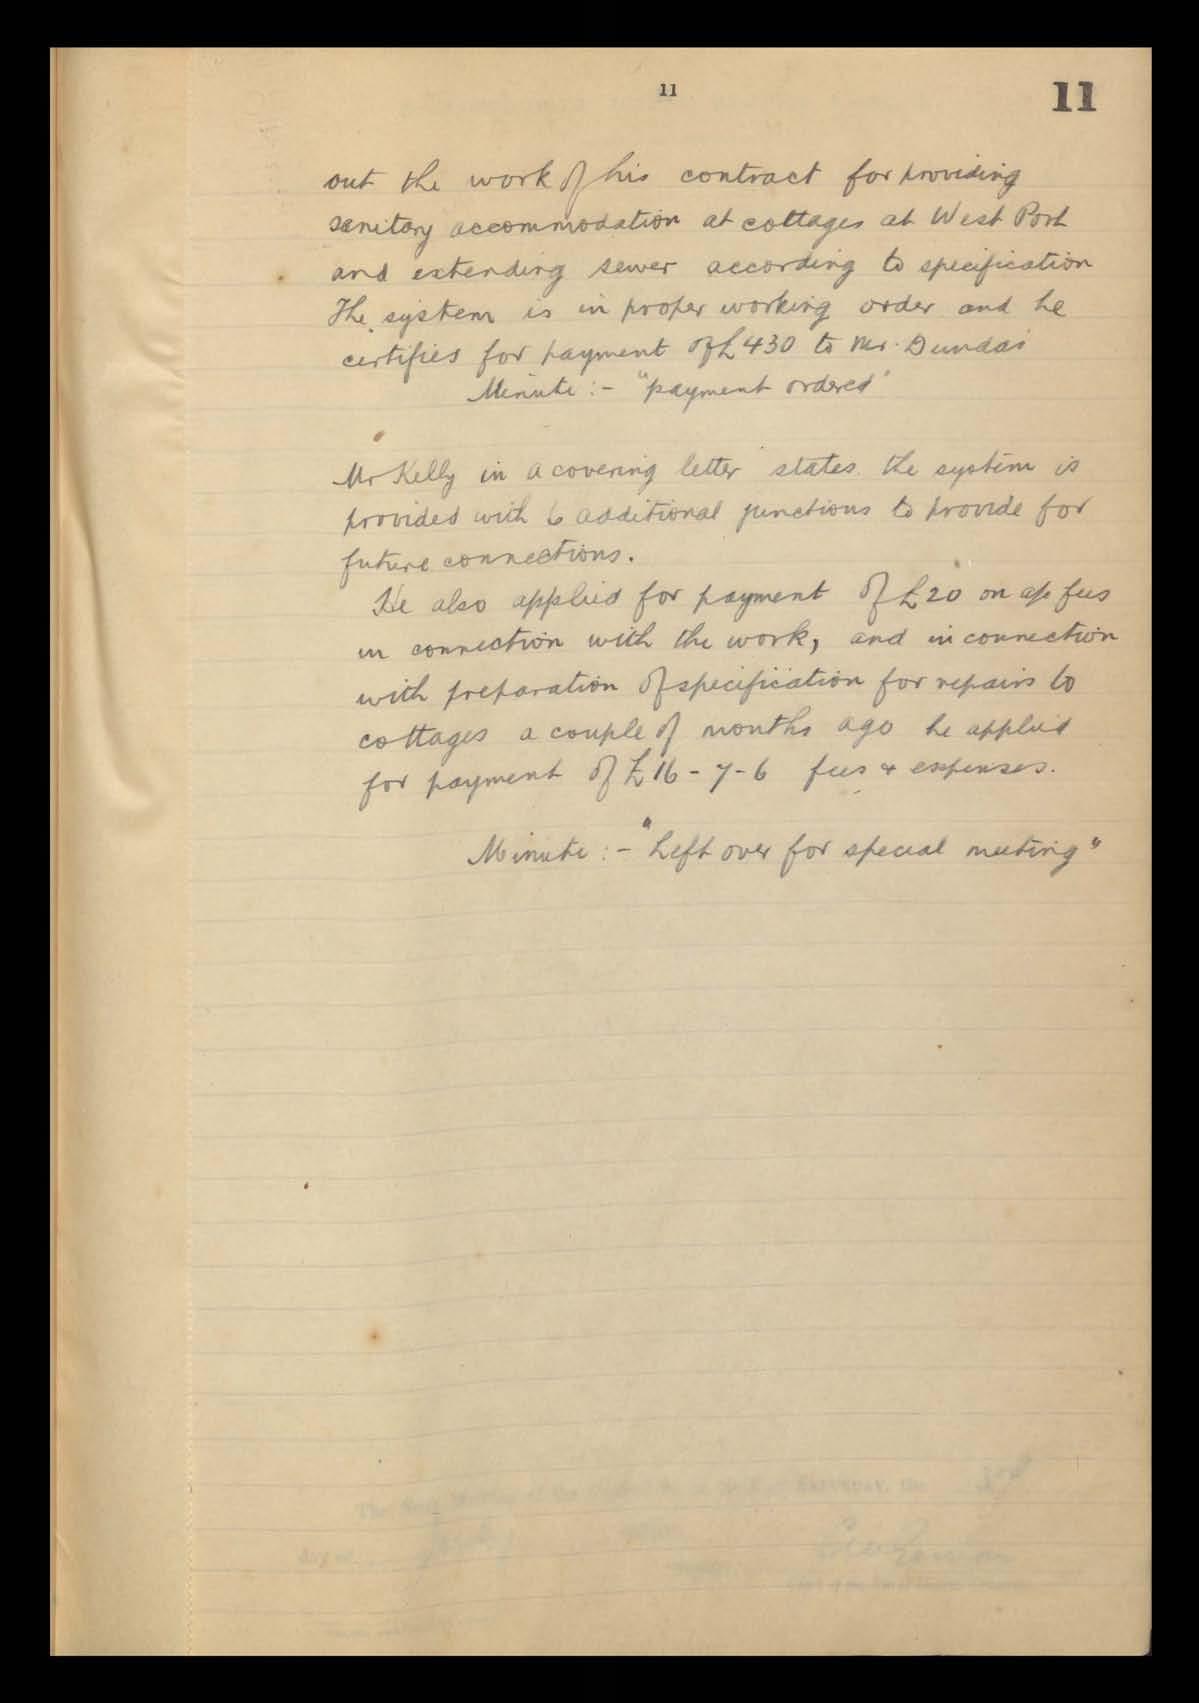 11
11
out the work of his contract for providing
sanitary accommodation at cottages at West Port
and extending sewer according to specification
The system is in proper working order and he
certifies for payment of £430 to Mr. Dundas
Minute :- "payment ordered"
Mr Kelly in a covering letter states the system is
provided with 6 additional junctions to provide for
future connections.
He also applied for payment of £20 on a/c fees
in connection with the work, and in connection
with preparation of specification for repairs to
cottages a couple of months ago he applied
for payment of £16-7-6 fees & expenses.
Minute :- "Left over for special meeting"